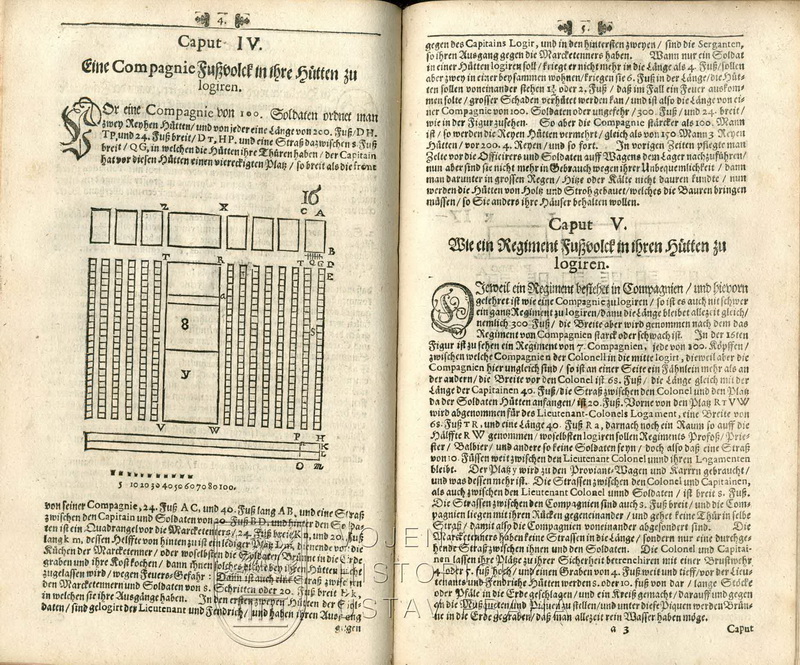 4.
Caput IV.
Eine Compagnie Fußvolck in ihre Hütten zu
logiren.
VOr eine Compagnie von 100. Soldaten ordnet man
zwey Reyhen Hütten / und von jeder eine Länge von 200. Fuß / D H.
T P, und 24. Fuß breit / D T, H P. und eine Straß dazwischen 8 Fuß
breit / Q G, in welchen die Hütten ihre Thüren haben / der Capitain
hat vor diesen Hütten einen viereckigten Platz / so breit als die front
16
Z X C A
B
T R T Q G D
E
a
8
S
y
V W P H
K
L
O m
5 10 20 30 40 50 60 70 80 100.
von seiner Compagnie, 24. Fuß A C, und 40. Fuß lang A B, und eine Straß
zwischen den Capitain und Soldaten von 20 Fuß B D. und hinter den Soldaten
ist ein Quadrangel vor die Marcketenters / 24. Fuß breit K n, und 20. Fuß
lang k m, dessen Helffte von hinten zu ist ein lediger Platz L m, dienende vor die
Küchen der Marcketenner / oder woselbsten die Soldaten / Brünne in die Erde
graben und ihre Kost kochen / dann ihnen solches bey ihren Hütten nicht
zugelassen wird / wegen Feuers-Gefahr: Dann ist auch eine Straß zwischen
den Marcketennern und Soldaten von 8. Schritten oder 20. Fuß breit
in welchen sie ihre Ausgänge haben. In den ersten zweyen Hütten der Soldaten
/ sind gelogirt der Lieutenant und Fendrich / und haben ihren Ausgang
gegen
5.
gegen des Capitains Logir, und in den hintersten zweyen / sind die Serganten,
so ihren Ausgang gegen die Marcketenners haben. Wann nur ein Soldat
in einer Hütten logiren soll / krieget er nicht mehr in die Länge als 4. Fuß / sollen
aber zwey in einer beysammen wohnen / kriegen sie 6. Fuß in der Länge / die Hütten
sollen voneinander stehen 1½ oder 2. Fuß / daß im Fall ein Feuer auskommen
solte / grosser Schaden verhütet werden kan / und ist also die Länge von einer
Compagnie von 100. Soldaten oder ungefehr / 300. Fuß / und 24. breit /
wie in der Figur zusehen. So aber die Compagnie stärcker als 100. Mann
ist / so werden die Reyen Hütten vermehrt / gleich als von 150 Mann 3 Reyen
Hütten / vor 200. 4. Reyen / und so fort. In vorigen Zeiten pflegte man
Zelte vor die Officirers und Soldaten auff Wagens dem Lager nachzuführen /
nun aber sind sie nicht mehr in Gebrauch wegen ihrer Unbequemlichkeit / dann
man darunter in grossen Regen / Hitze oder Kälte nicht dauren kundte / nun
werden die Hütten von Holtz und Stroh gebauet / welches die Bauren bringen
müssen / so Sie anders ihre Häuser behalten wollen.
Caput V.
Wie ein Regiment Fußvolck in ihren Hütten zu
logiren.
DIeweil ein Regiment bestehet in Compagnien / und hievorn
gelehret ist wie eine Compagnie zu logiren / so ist es auch nit schwer
ein gantz Regiment zu logiren / dann die Länge bleibet allezeit gleich /
nemlich 300. Fuß / die Breite aber wird genommen nach dem das
Regiment von Compagnien starck oder schwach ist. In der 16ten
Figur ist zu sehen ein Regiment von 7. Compagnien, jede von 100. Köpffen /
zwischen welche Compagnien der Colonell in die mitte logirt, dieweil aber die
Compagnien hier ungleich sind / so ist an einer Seite ein Fähnlein mehr als an
der andern / die Breite vor den Colonel ist 68. Fuß / die Länge gleich mit der
Länge der Capitainen 40. Fuß / die Straß zwischen den Colonel und den Platz
da der Soldaten Hütten anfangen / ist 20. Fuß. Vorne von den Platz R T V W
wird abgenommen für des Lieutenant-Colonels Logament, eine Breite von
68. Fuß T R, und eine Länge 40. Fuß R a, darnach noch ein Raum so auff die
Hälffte R W genommen / woselbsten logiren sollen Regiments Profoß / Priester
/ Balbier / und andere so keine Soldaten seyn / doch also daß eine Straß
von 10. Füssen weit zwischen den Lieutenant Colonel unnd ihren Logamenten
bleibt. Der Platz y wird zu den Proviant-Wagen und Karrn gebraucht /
und was dessen mehr ist. Die Strassen zwischen den Colonel und Capitainen,
als auch zwischen den Lieutenant Colonel unnd Soldaten / ist breit 8. Fuß.
Die Strassen zwischen den Compagnien sind auch 8. Fuß breit / und die Compagnien
liegen mit ihren Rücken gegeneinander / und gehet keine Thür in selbe
Straß / damit also die Compagnien voneinander abgesondert sind. Die
Marcketenners haben keine Strassen in die Länge / sondern nur eine durchgehende
Straß zwischen ihnen und den Soldaten. Die Colonel und Capitainen
lassen ihre Plätze zu ihrer Sicherheit berenchiren mit einer Brustwehr
4. oder 5. Fuß hoch / und einen Graben von 4. Fuß weit und tieff / vor der Lieutenants
und Fendrichs Hütten werden 8. oder 10. Fuß von dar / lange Stöcke
oder Pfäle in die Erde geschlagen / und ein Kreiß gemacht / darauff und gegen
an die Mußqueten und Piquen zu stellen / und unter diese Piquen werden Brünne
in die Erde gegraben / daß man allezeit rein Wasser haben möge.
a 3 Caput